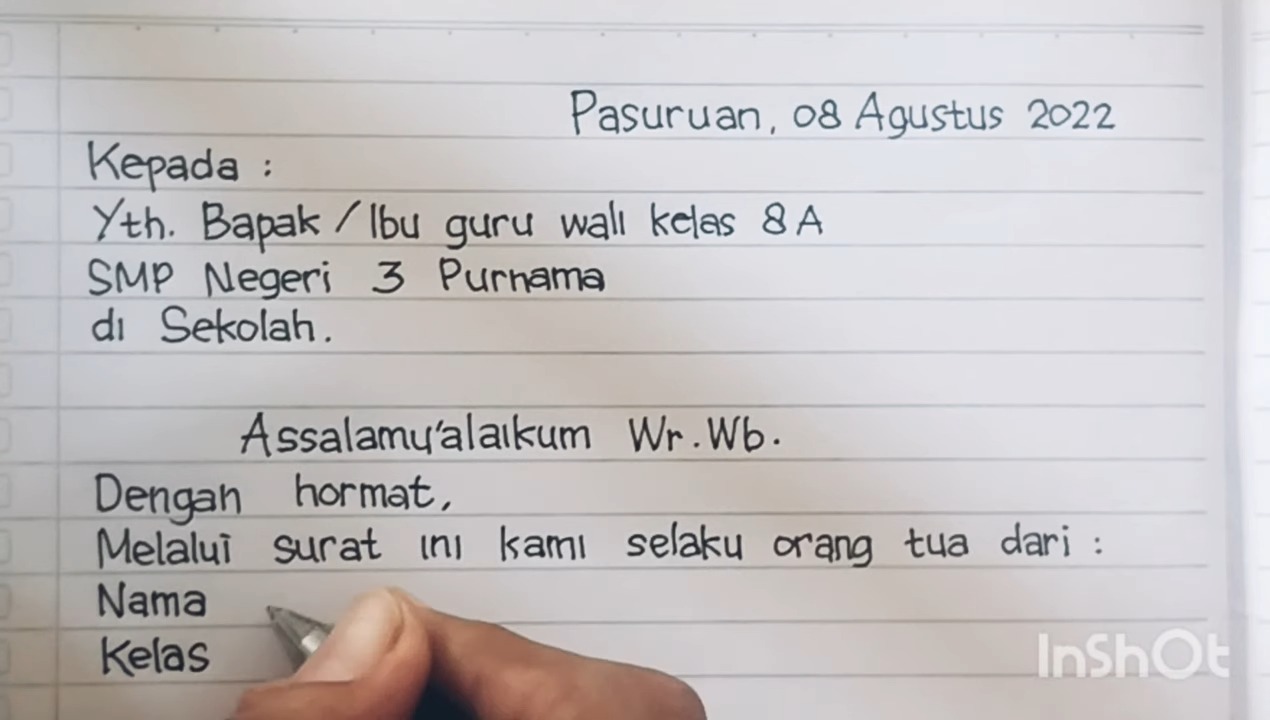 Pasuruan, 08 Agustus 2022
Kepada :
Yth. Bapak / Ibu guru wali kelas 8 A
SMP Negeri 3 Purnama
di Sekolah.
Assalamu'alaikum Wr. Wb.
Dengan hormat,
Melalui surat ini kami selaku orang tua dari :
Nama
Kelas
InShOt